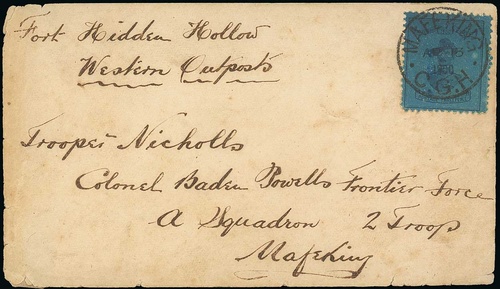 Fort Hidden Hollow
Western Outposts
Trooper Nicholls
Colonel Baden Powells Frontier Force
A Squadron 2 Troop
Mafeking
MAFEKING
C.G.H